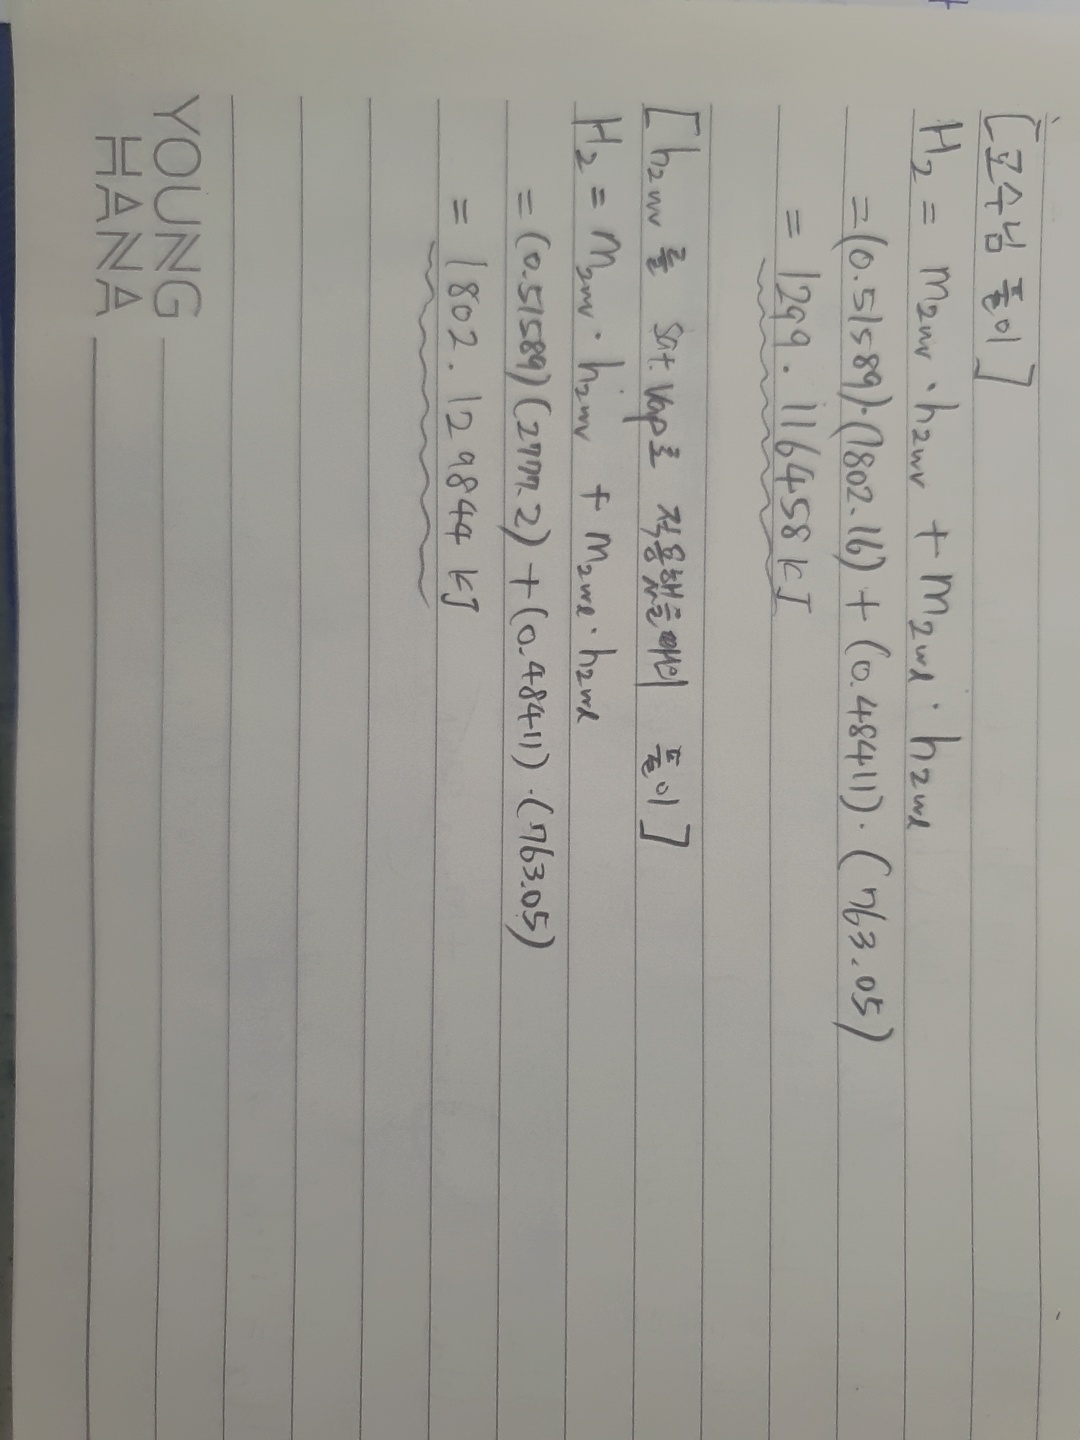 [교수님 풀이]
H₂ = m₂wv · h₂wv + m₂wl · h₂wl
=(0.51589)·(1802.16) + (0.48411)·(763.05)
= 1299.116458 kJ
[h₂wv 를 Sat. Vap로 적용했을때의 풀이]
H₂ = m₂wv · h₂wv + m₂wl · h₂wl
=(0.51589)(2777.2)+(0.48411)·(763.05)
= 1802.129844 kJ
YOUNG
HANA